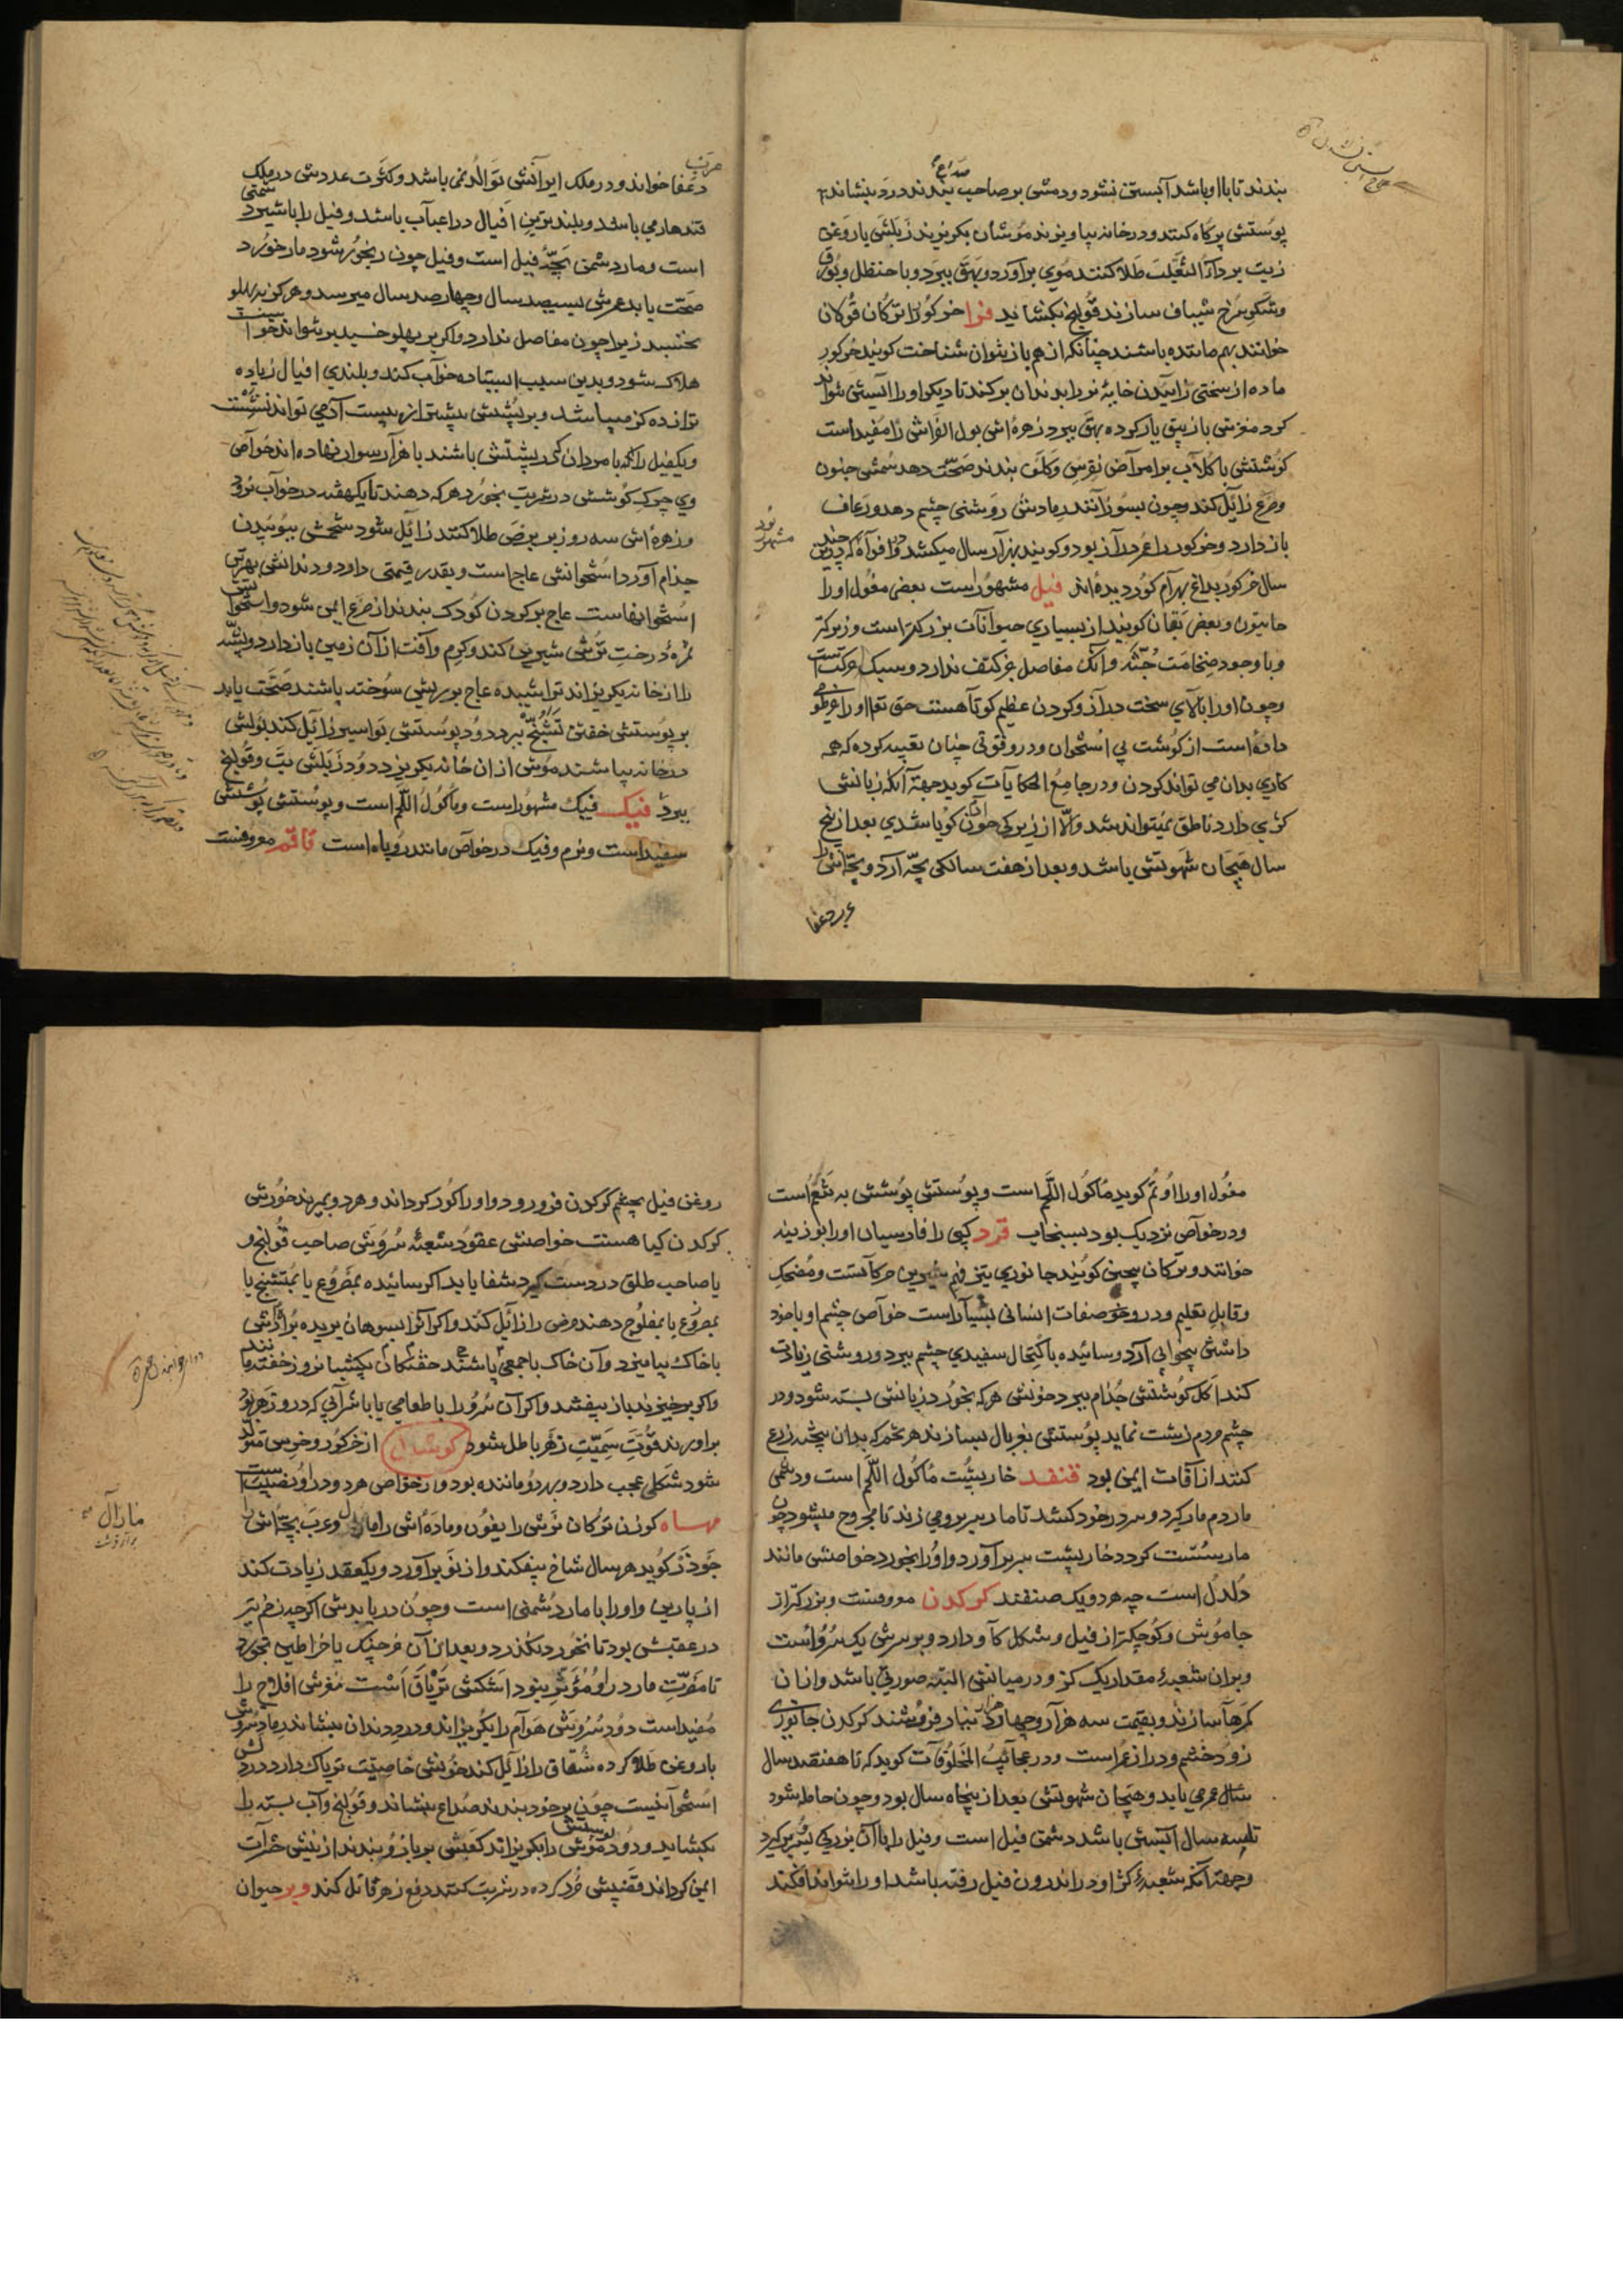 بندند تا با او باشد آبستن نشود و دمش بر صاحب صداع بندند درد بنشاند
پوستش پرکاه کنند و در خانه بیاویزند موشان بگریزند زبلش با روغن
زیت بر داء الثعلب طلا کنند موی برآورد و بهق ببرد و با حنظل و بورق
و شکر سرخ شیاف سازند قولنج بگشاید فرا خر کور را ترکان قولان
خوانند بهم ماننده باشند چنانکه از هم باز نتوان شناخت گویند خرکور
ماده از سختی زاییدن خایۀ نر را بدندان برکند تا دیگر او را آبستن نتواند
کرد مغزش با زیبق یار کرده بهق ببرد زهره‌اش بول الفراش را مفید است
گوشتش با گلاب بر امراض نقرس و کلف بندند صحت دهد سمش جنون
و صرع زایل کند و چون بسوزانند رمادش روشنی چشم دهد و رعاف
باز دارد و خرکور را عمر دراز بود و گویند بهزار سال میکشد و در افواه که چندین
سال خرکور بداغ بهرام گور دیده‌اند فیل مشهور است بعض مغول او را
جانیون و بعض یغان گویند از بسیاری حیوانات بزرگتر است و زیرکتر
و با وجود ضخامت جثه و آنک مفاصل جز کتف ندارد و سبک حرکت است
و چون او را بالای سخت دراز و گردن عظیم کوتاه هست حق تعا او را خرطومی
داده است از گوشت بی استخوان و در و قوتی چنان تعبیه کرده که همه
کاری بدان می تواند کردن و در جامع الحکایات گوید جهة آنکه زبانش
کژی دارد ناطق نمیتواند شد و الا از زیرکی چون آدمی گویا شدی بعد از پنج
سال هیجان شهوتش باشد و بعد از هفت سالگی بچه آرد و بچه‌اش را
عرب دغفا
دغفا خواند و در ملک ایرانش توالد نمی باشد و کثرت عددش در ملک
قندهار می باشد و بلندترین افیال در اعباب باشد و فیل را با شیر دشمنی
است و مار دشمن بچه فیل است و فیل چون رنجور شود مار خورد
صحت یابد عمرش بسیصد سال و چهارصد سال میرسد و هرگز به پهلو
نخسبد زیرا چون مفاصل ندارد و اگر بر پهلو خسبد برنتواند خواست
هلاک شود و بدین سبب ایستاده خواب کند و بلندی افیال زیاده
تر از ده گز میباشد و بر پشتش بیشتر از بیست آدمی تواند نشست
و یکفیل را که با مردان که بر پشتش باشند با هزار سوار نهاده‌اند خواص
وی چرک گوشش در شربت بخورد هر که دهند تا یکهفته در خواب برود
و زهره‌اش سه روز بر برص طلا کنند زایل شود شحمش ببوییدن
جذام آورد استخوانش عاج است و بقدر قیمتی دارد و دندانش بهترین
استخوانهاست عاج بر گردن کودک بندند از صرع ایمن شود و استخوانش
ثمرۀ درخت ترش شیرین کند و کرم و آفت از آن زمین باز دارد و پشه
را از خانه بگریزاند تراشیده عاج بر ریش سوخته پاشند صحت یابد
بر پوستش خفتن تشنج ببرد دود پوستش بواسیر زایل کند بولش
در خانه بپاشند موش از ان خانه بگریزد دود زبلش تب و قولنج
ببرد فنک فنک مشهور است و ماکول اللحم است و پوستش پوشش
سفید است و نرم و فنک در خواص مانند روباه است قاقم معروفست
مغول او را اوتم گوید ماکول اللحم است و پوستش پوشش به تنعم است
و در خواص نزدیک بود بسنجاب قرد کپی را فارسیان او را بوزینه
خوانند و ترکان بیچین گویند جانوری تیز فهم شیرین حرکات است و مضحک
و قابل تعلیم و در و صفات انسانی بسیار است خواص چشم او با خود
داشتن بیخوابی آرد و سائیده باکتحال سفیدی چشم ببرد و روشنی زیادت
کند اکل گوشتش جذام ببرد خونش هر که بخورد زبانش بسته شود و در
چشم مردم زشت نماید پوستش غربال بسازند هر تخم که بدان بیخته زرع
کنند از آفات ایمن بود قنفد خارپشت ماکول اللحم است و دشمنی
مار دم مار گیرد و سر در خود کشد تا مار بر بر وی زند تا مجروح میشود چون
مار سست گردد خارپشت سر برآورد و او را بخورد خواصش مانند
دلدل است چه هر دو یک صنفند کرکدن معروفست و بزرگتر از
جاموش و کوچکتر از فیل و شکل گاو دارد و بر سرش یک سرو است
و بران شعبۀ مقدار یک گز و در میانش البته صورتی باشد و ازان
کمرها سازند و بقیمت سه هزار و چهار هزار دینار فروشند کرکدن جانوری
زود خشم و دراز عمر است و در عجائب المخلوقات گوید که تا هفتصد سال
سال عمر می یابد و هیجان شهوتش بعد از پنجاه سال بود و چون حامله شود
تا سه سال آبستن باشد دشمن فیل است و فیل را با آن بزرگی بسر برگیرد
و جهة آنکه شعبۀ کژ او در اندرون فیل رفته باشد او را نتواند افکند
روغن فیل بچشم کرکدن فرو رود و او را کور گرداند و هر دو بمیرند خورش
کرکدن گیاه هست خواصش عقود شعبۀ سروش صاحب قولنج و
یا صاحب طلق در دست گیرد شفا یابد اگر سائیده بمصروع یا بمتشنج یا
بمصروع یا بمفلوج دهند مرض را زائل کند و اگر انرا بسوهان بریده براده‌اش
با خاک بیامیزد و آن خاک با جمعی پاشند خفتگان یکشبانروز خفته مانند
و اگر برخیزند باز بیفتند و اگر آن سرو را با طعامی یا با شرابی که در و زهر بود
برابرند قوت سمیت زهر باطل شود کوشار از خرکور و خرس متولد
شود شکلی عجب دارد و بهر دو ماننده بود و در خواص هر دو در او نصیب است
مهاه گوزن ترکان نرش را بغون و ماده‌اش را مارال و عرب بچه‌اش را
جوذر گوید هر سال شاخ بیفکند و از نو برآورد و یکعقد زیادت کند
از پارین و او را با مار دشمنی است و چون دریابدش اگرچه زخم تیر
در عقبش بود تا نخورد نگذرد و بعد از آن خرچنگ یا خراطین بخورد
تا مضرت مار در او مؤثر نبود اشکش تریاق است مغزش افلاج را
مفید است دود سروش هوام را بگریزاند و درد دندان بنشاند رماد سروش
با روغن طلا کرده شقاق را زایل کند خونش خاصیت تریاک دارد در دلش
استخوانیست چون بر خود بندند صداع بنشاند و قولنج و آب بسته را
بگشاید و دود پوستش موش را بگریزاند کعبش بر بازو بندند از نیش حشرات
ایمن گرداند قضیبش خرد کرده در شربت کنند دفع زهر قاتل کند وبر حیوان
مارال